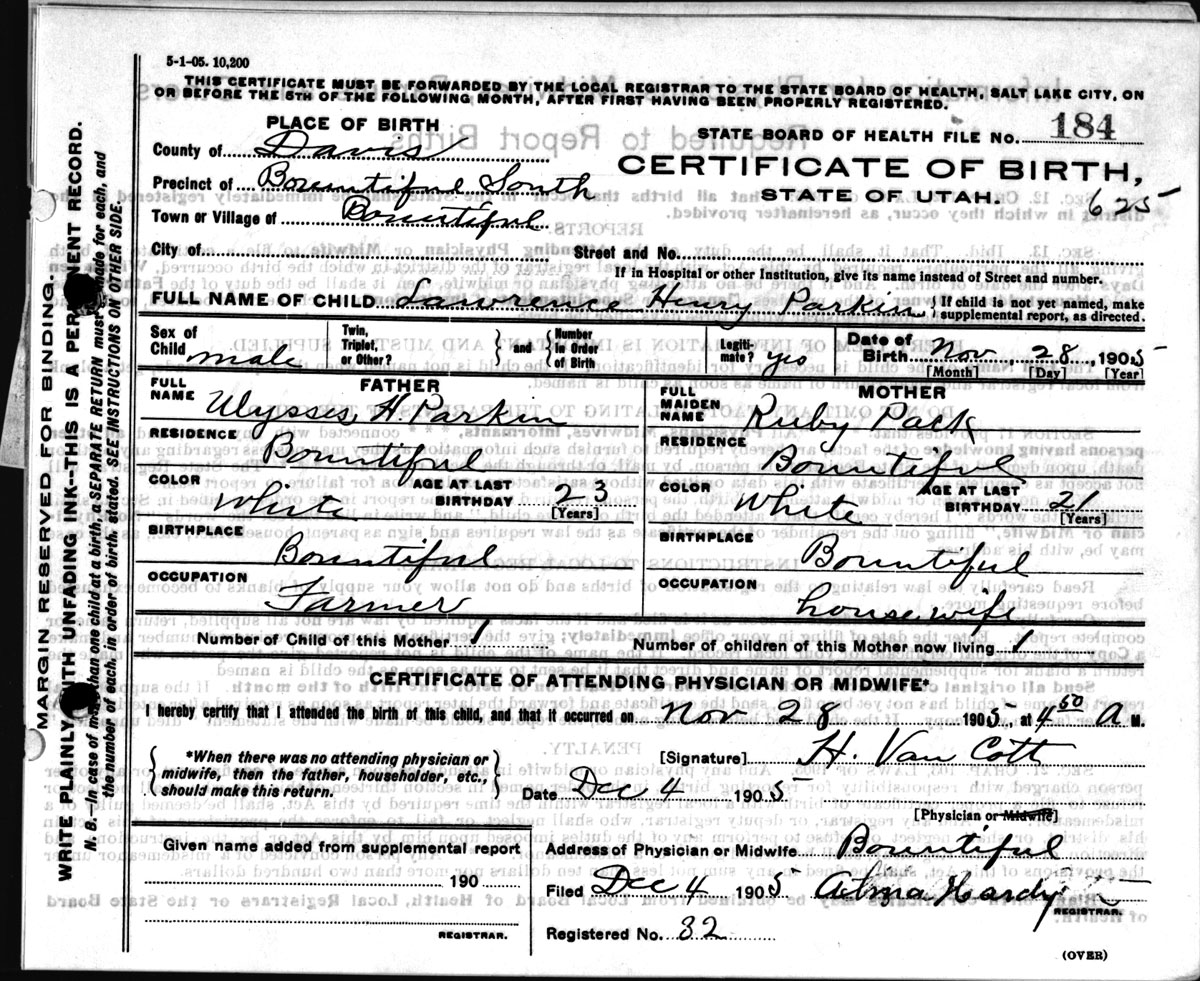 5-1-05. 10,200
THIS CERTIFICATE MUST BE FORWARDED BY THE LOCAL REGISTRAR TO THE STATE BOARD OF HEALTH, SALT LAKE CITY, ON
OR BEFORE THE 5TH OF THE FOLLOWING MONTH, AFTER FIRST HAVING BEEN PROPERLY REGISTERED.
PLACE OF BIRTH
STATE BOARD OF HEALTH FILE No. 184
County of Davis
CERTIFICATE OF BIRTH,
Precinct of Bountiful South
STATE OF UTAH.
625
Town or Village of Bountiful
City of
Street and No.
If in Hospital or other Institution, give its name instead of Street and number.
FULL NAME OF CHILD Lawrence Henry Parkin { If child is not yet named, make
supplemental report, as directed.
Sex of Child male
Twin, Triplet, or Other? } and { Number in Order of Birth
Legiti-mate? yes
Date of Birth Nov 28 1905
[Month] [Day] [Year]
FATHER
FULL NAME Ulysses H Parkin
MOTHER
FULL MAIDEN NAME Ruby Pack
RESIDENCE Bountiful
RESIDENCE Bountiful
COLOR White AGE AT LAST BIRTHDAY 23 [Years]
COLOR White AGE AT LAST BIRTHDAY 21 [Years]
BIRTHPLACE Bountiful
BIRTHPLACE Bountiful
OCCUPATION Farmer
OCCUPATION housewife
Number of Child of this Mother 1
Number of children of this Mother now living 1
CERTIFICATE OF ATTENDING PHYSICIAN OR MIDWIFE*
I hereby certify that I attended the birth of this child, and that it occurred on Nov 28 1905, at 4 50 A M.
{ *When there was no attending physician or
midwife, then the father, householder, etc.,
should make this return. }
[Signature] H. Van Cott
Date Dec 4 1905
[Physician or Midwife]
Given name added from supplemental report
190
REGISTRAR.
Address of Physician or Midwife Bountiful
Filed Dec 4 1905 Alma Hardy
REGISTRAR.
Registered No. 32
(OVER)
MARGIN RESERVED FOR BINDING.
WRITE PLAINLY WITH UNFADING INK--THIS IS A PERMANENT RECORD.
N. B.--In case of more than one child at a birth, a SEPARATE RETURN must be made for each, and
the number of each, in order of birth, stated. SEE INSTRUCTIONS ON OTHER SIDE.